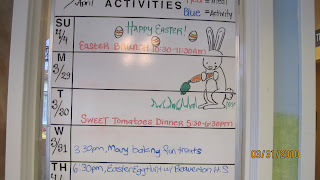 April ACTIVITIES = Meal
Blue = Activity
SU 4/4 HAPPY EASTER!
Easter Brunch 10:30-11:30am
M 3/29
T 3/30
SWEET Tomatoes Dinner 5:30-6:30pm
W 3/31 3:30pm, Mary baking fun treats
TH 6:30pm, Easter Egg Hunt w/ Beaverton H.S
03/31/2010